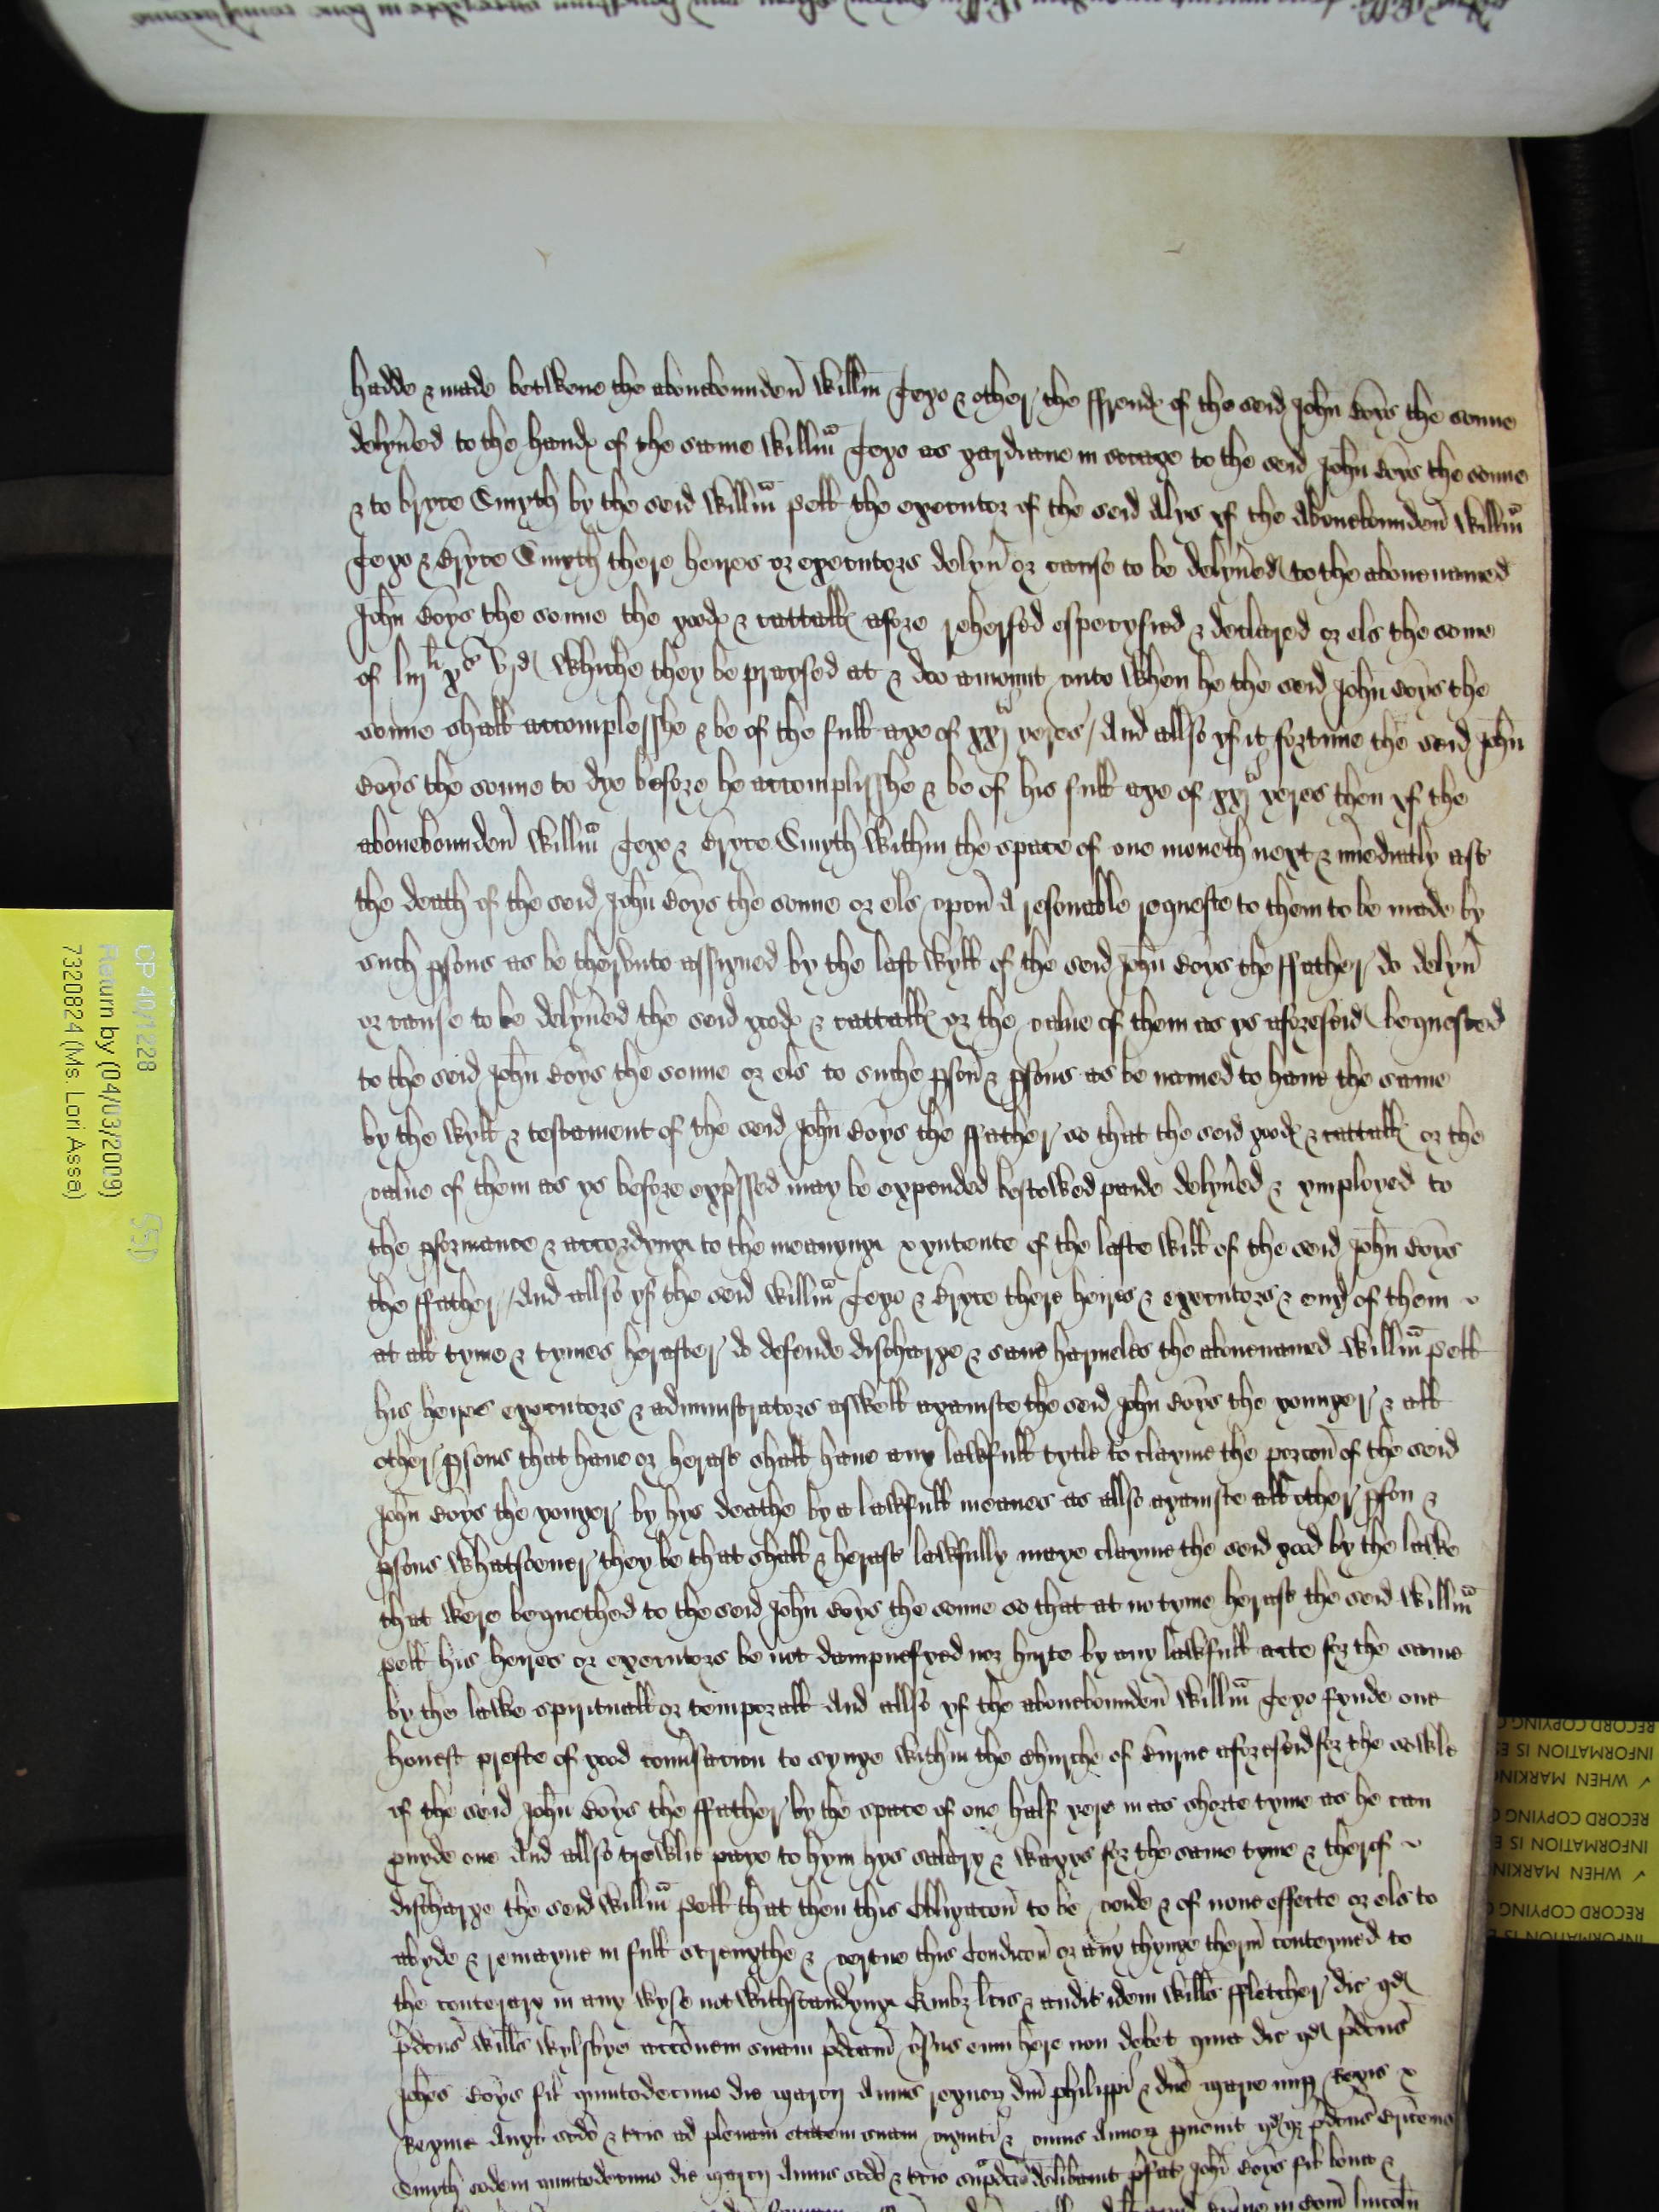 hadde & made betwene the abovebounden Willm Jeyo & other the ffrendes of the seid John Boys the sonne
delyued to the handes of the same Willm Jeyo as gardiane in socage to the seid John Boys the sonne
& to bryce Smyth by the seid Willm pell the executor of the seid Alys yf the Abovebounden Willm
Jeyo & Bryce Smyth there heires or executors delyu or cause to be delyued to the abovenamed
John Boys the sonne the goodes & cattalles afore rehersed especyfied & declared or els the some
of liiij li xs vjd whiche they be praysed at & doo amount unto when he the seid John Boys the
sonne shall accomplesshe & be of the full age of xxj yeres / And allso yf it fortune the seid John
Boys the sonne to dye before he accomplisshe & be of his full age of xxj yeres then yf the
abovebounden Willm Jeyo & Bryce Smyth within the space of one moneth next & imediatly aft
the death of the seid John Boys the sonne or els upon A resonable requeste to them to be made by
such psons as be therunto assigned by the last wyll of the seid John Boys the ffather do delyu
or cause to be delyued the seid goodes & cattalles or the value of them as ys aforeseid bequested
to the seid John Boys the sonne or els to suche pson & psons as be named to have the same
by the wyll & testament of the seid John Boys the ffather so that the seid goodes & cattalles or the
value of them as ys before expssed may be expended bestowed paide delyued & ymployed to
the pformance & accordynge to the meanynge & yntente of the laste will of the seid John Boys
the ffather / And allso yf the seid Willm Jeyo & Bryce there heires & executors & eny of them
at all tyme & tymes herafter do defende discharge & save harmeles the abovenamed Willm pell
his heires executors & administrators aswell agaynste the seid John Boys the younger & all
other psons that have or heraft shall have any lawfull tytle to clayme the porcon of the seid
John Boys the yonger by hys deathe by a lawfull meanes as allso agaynste all other pson &
psons whatsoever they be that shall & heraft lawfully maye clayme the seid good by the lawe
that were bequethed to the seid John Boys the sonne so that at no tyme heraft the seid Willm
pell his heires or executors be not dampnefyed nor hurte by any lawfull acte for the same
by the lawe spirituall or temporall And allso yf the abovebounden Willm Jeyo fynde one
honest preste of good convsacion to synge within the Churche of Burne aforeseid for the sowle
of the seid John Boys the ffather by the space of one half yere in as shorte tyme as he can
pvyde one And allso trewlie paye to hym hys salary & wagys for the same tyme & therof
discharge the seid Willm pell that then this Obligacon to be voide & of none effecte or els to
abyde & remayne in full strengthe & vertue this Condicon or any thynge therin conteyned to
the conterary in any wyse not withstandynge Quibz lcis & audit idem Wills ffletcher dic qd
pdcus Wills Wylsbye accoem suam pdcam vsus eum here non debet quia dic qd pdcus
Johes Boys fil quintodecimo die marcij Annis regnor dni philippi & dne marie nup Regis &
Regine Angl scdo & tcio ad plenam etatem suam viginti & unius Annor pvenit qdqz pdcus Bricius
Smyth eodem quintodecimo die marcij Annis scdo & tcio supdcis delibavit pfat John Boys fil bona &
CP 40/1228
Return by (04/03/2009)
7320824 (Ms. Lori Assa)
RECORD COPYING
INFORMATION IS
✓ WHEN MARKING
RECORD COPYING
INFORMATION IS
✓ WHEN MARKING
RECORD COPYING